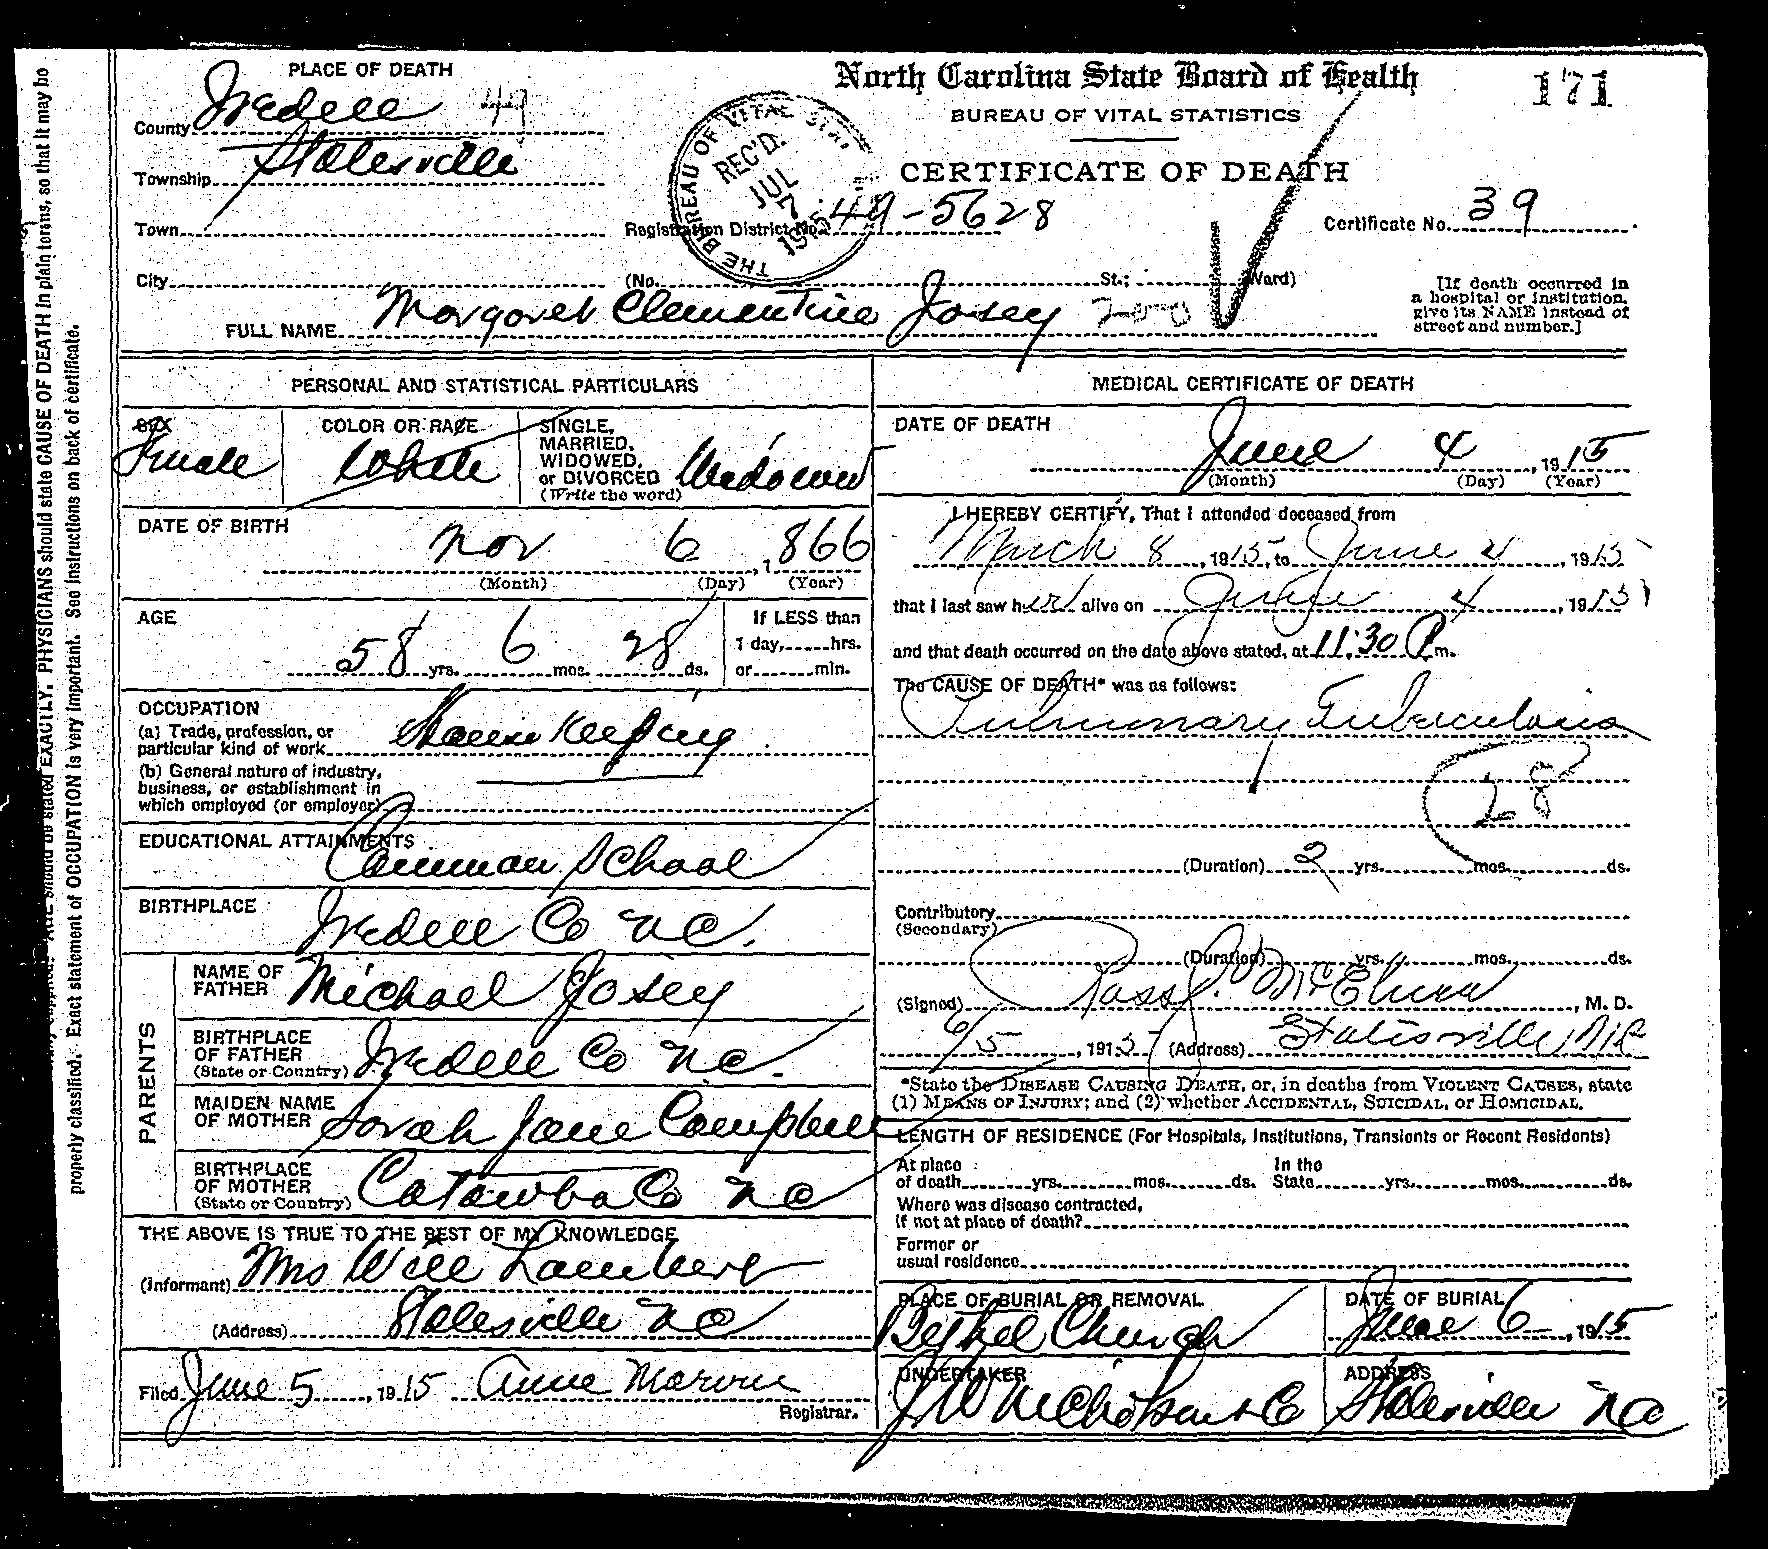 PLACE OF DEATH
County Iredell 49
Township Statesville
Town
City
North Carolina State Board of Health
171
BUREAU OF VITAL STATISTICS
CERTIFICATE OF DEATH
THE BUREAU OF VITAL STATI
REC'D.
JUL
7
1915
Registration District No. 49-5628
Certificate No. 39
(No. St.; Ward)
[If death occurred in
a hospital or institution,
give its NAME instead of
street and number.]
FULL NAME Margaret Clementine Josey 200
PERSONAL AND STATISTICAL PARTICULARS
SEX
Female
COLOR OR RACE
White
SINGLE,
MARRIED,
WIDOWED,
or DIVORCED
(Write the word)
Widowed
DATE OF BIRTH
Nov 6, 1866
(Month) (Day) (Year)
AGE
58 yrs. 6 mos. 28 ds.
If LESS than
1 day, hrs.
or min.
OCCUPATION
(a) Trade, profession, or
particular kind of work House Keeping
(b) General nature of industry,
business, or establishment in
which employed (or employer)
EDUCATIONAL ATTAINMENTS
Common School
BIRTHPLACE
Iredell Co N.C.
PARENTS
NAME OF
FATHER Michael Josey
BIRTHPLACE
OF FATHER
(State or Country) Iredell Co N.C.
MAIDEN NAME
OF MOTHER Sarah Jane Campbell
BIRTHPLACE
OF MOTHER
(State or Country) Catawba Co N C
THE ABOVE IS TRUE TO THE BEST OF MY KNOWLEDGE
(Informant) Mrs Will Lambert
(Address) Statesville N C
Filed June 5, 1915 Anne
Registrar.
MEDICAL CERTIFICATE OF DEATH
DATE OF DEATH
June 4, 1915
(Month) (Day) (Year)
I HEREBY CERTIFY, That I attended deceased from
March 8, 1915, to June 4, 1915
that I last saw her alive on June 4, 1915
and that death occurred on the date above stated, at 11:30 P m.
The CAUSE OF DEATH* was as follows:
Pulmonary Tuberculosis
28
(Duration) 2 yrs. mos. ds.
Contributory
(Secondary)
(Duration) yrs. mos. ds.
(Signed) Ross McElwee, M. D.
6/5, 1915 (Address) Statesville, N.C.
*State the DISEASE CAUSING DEATH, or, in deaths from VIOLENT CAUSES, state
(1) MEANS OF INJURY; and (2) whether ACCIDENTAL, SUICIDAL, or HOMICIDAL.
LENGTH OF RESIDENCE (For Hospitals, Institutions, Transients or Recent Residents)
At place
of death yrs. mos. ds.
In the
State yrs. mos. ds.
Where was disease contracted,
if not at place of death?
Former or
usual residence
PLACE OF BURIAL OR REMOVAL
Bethel Church
DATE OF BURIAL
June 6, 1915
UNDERTAKER
J W Nicholson & Co
ADDRESS
Statesville N C
PHYSICIANS should state CAUSE OF DEATH in plain terms, so that it may be
properly classified. Exact statement of OCCUPATION is very important. See instructions on back of certificate.